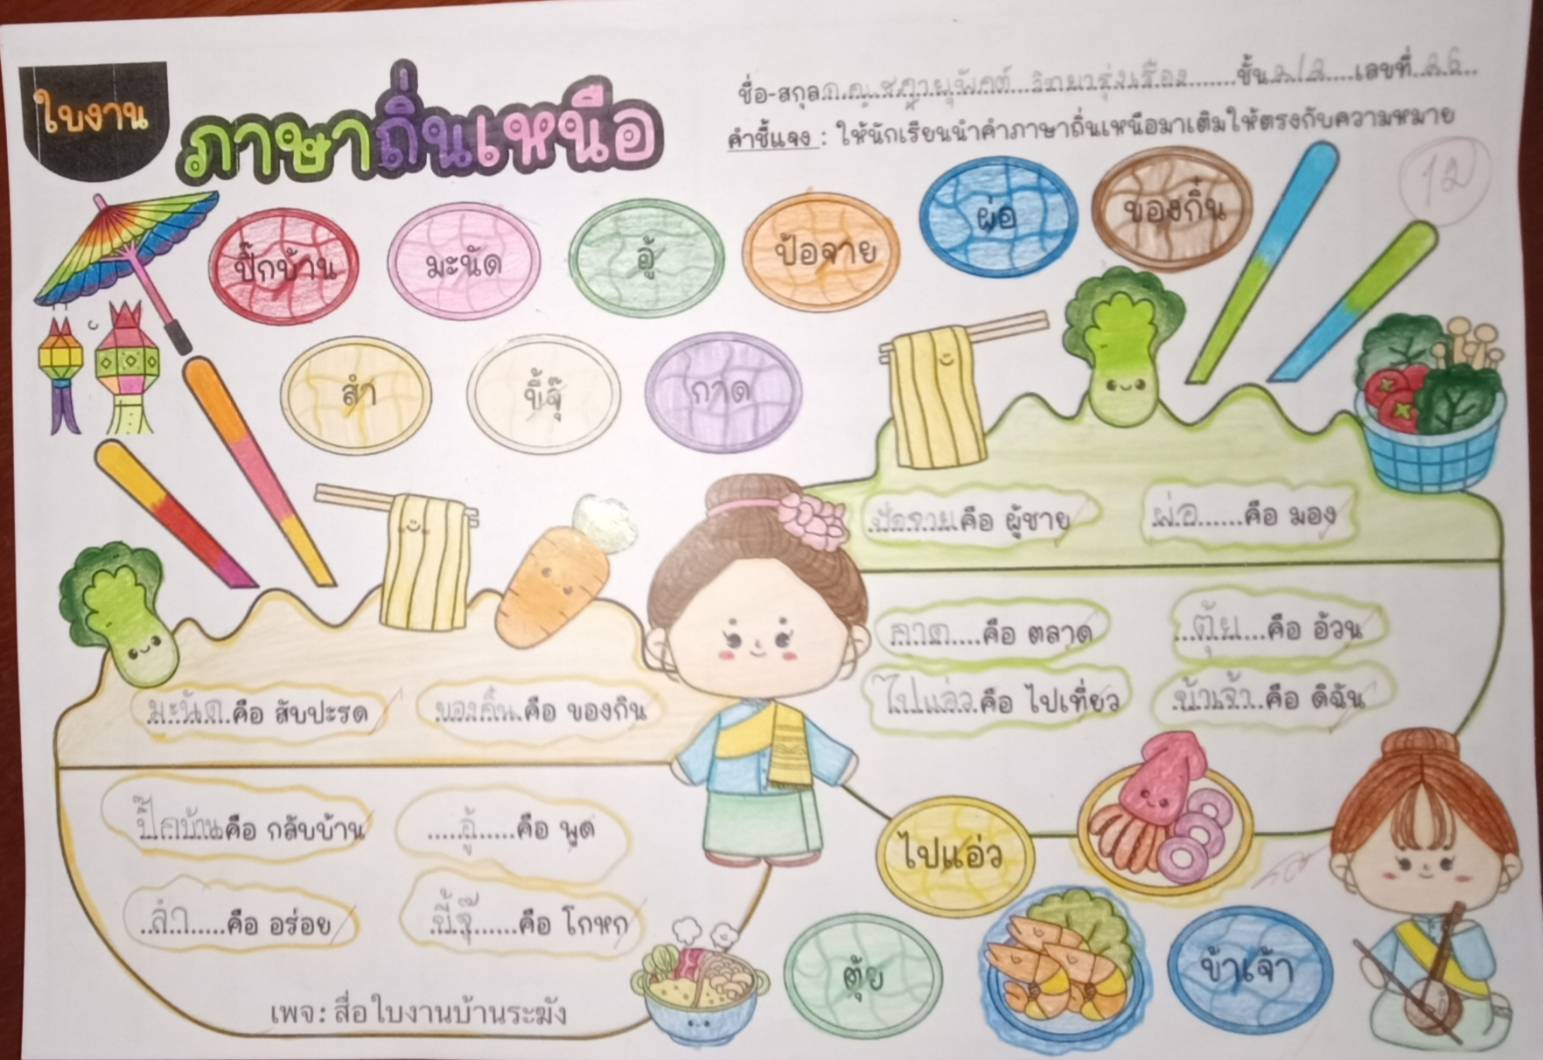 ใบงาน
ภาษาถิ่นเหนือ
ชื่อ-สกุล ชั้น 2/2 เลขที่ 26
คำชี้แจง : ให้นักเรียนนำคำภาษาถิ่นเหนือมาเติมให้ตรงกับความหมาย
12
ปิ๊กบ้าน มะนัด อู้ ป้อจาย ผ่อ ของกิ๋น
ลำ ขี้จุ๊ กาด
ป้อจาย คือ ผู้ชาย ผ่อ......คือ มอง
กาด....คือ ตลาด ...ตุ้ย...คือ อ้วน
ไปแอ่ว คือ ไปเที่ยว ข้าเจ้า..คือ ดิฉัน
มะนัด.คือ สับปะรด ของกิ๋น.คือ ของกิน
ปิ๊กบ้าน คือ กลับบ้าน .....อู้......คือ พูด
..ลำ.....คือ อร่อย ..ขี้จุ๊......คือ โกหก
ไปแอ่ว
ตุ้ย ข้าเจ้า
เพจ: สื่อใบงานบ้านระฆัง